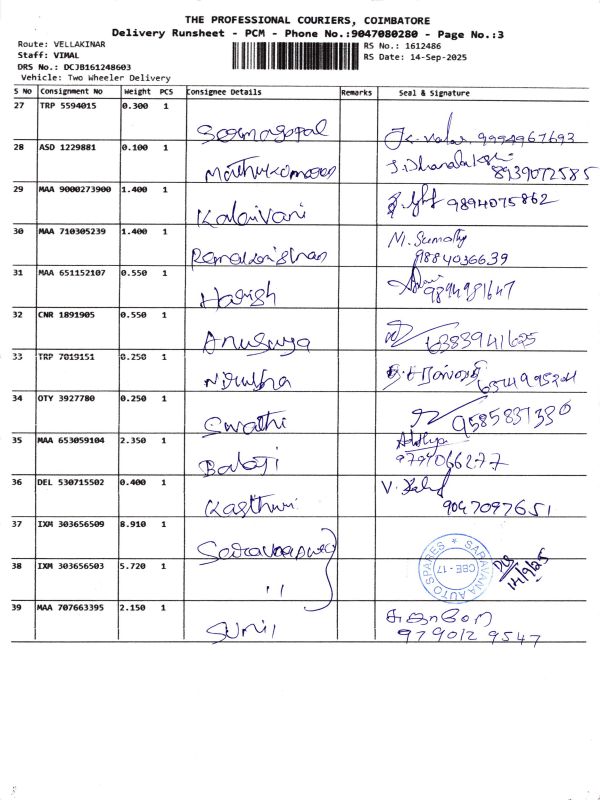 THE PROFESSIONAL COURIERS, COIMBATORE
Delivery Runsheet - PCM - Phone No.:9047080280 - Page No.:3
Route: VELLAKINAR
RS No.: 1612486
Staff: VIMAL
RS Date: 14-Sep-2025
DRS No.: DCJB161248603
Vehicle: Two Wheeler Delivery
S NO Consignment No Weight PCS Consignee Details Remarks Seal & Signature
27 TRP 5594015 0.300 1
9994967693
28 ASD 1229881 0.100 1
8939072585
29 MAA 9000273900 1.400 1
Kalaivani 9894075862
30 MAA 710305239 1.400 1
M. Sumathy
9884036639
31 MAA 651152107 0.550 1
Harish 9894981647
32 CNR 1891905 0.550 1
Anusuya 6383941625
33 TRP 7019151 0.250 1
34 OTY 3927780 0.250 1
Swathi 9585831330
35 MAA 653059104 2.350 1
Balaji
9794066277
36 DEL 530715502 0.400 1
Kasthuri 9047097651
37 IXM 303656509 8.910 1
SARAVANA AUTO SPARES * CBE - 17 *
14/9/25
38 IXM 303656503 5.720 1
"
39 MAA 707663395 2.150 1
Sunil
9790129547